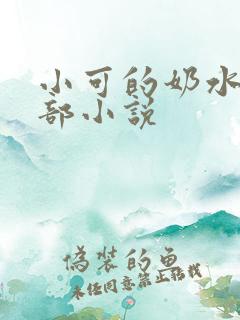 小可的奶水
部小说
伪装的鱼
未经同意禁止转载